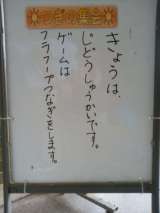 つぎの集会
きょうは、
じどうしゅうかいです。
ゲームは
フラフープつなぎをします。